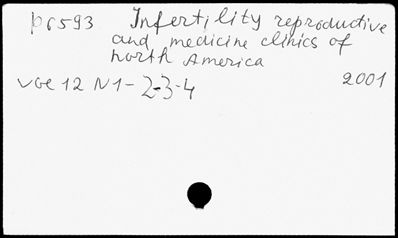 p6593 Infertility reproductive
and medicine clinics of
north America
voe 12 N1-2-3-4 2001